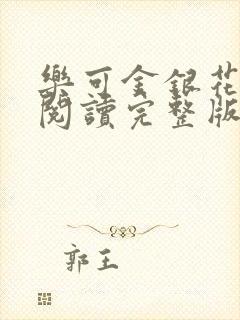 樂可金銀花
閱讀完整版
郭王